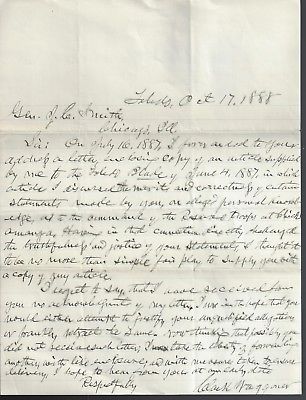 Toledo, Oct 17, 1888
Gen. J. C. Smith,
Chicago, Ill.
Sir: On July 16, 1887, I forwarded to your
address a letter, inclosing copy of an article supplied
by me to the Toledo Blade of June 4, 1887, in which
article I discussed the merits and correctness of certain
statements made by you, on alleged personal knowl-
edge, as to the command of the Reserve troops at Chick-
amauga. Having in that connection directly challenged
the truthfulness and justice of your statements, I thought it
to be no more than simple fair play to supply you with
a copy of my article.
I regret to say, that I have received from
you no acknowledgment of my letter. I was in hope that you
would either attempt to justify your allegation
or frankly retract the same. Now thinking that possibly you
did not receive such letter, I now take the liberty of forwarding
another with like inclosure, and with measures taken to secure
delivery. I hope to hear from you at an early date
Respectfully
Clark Waggoner